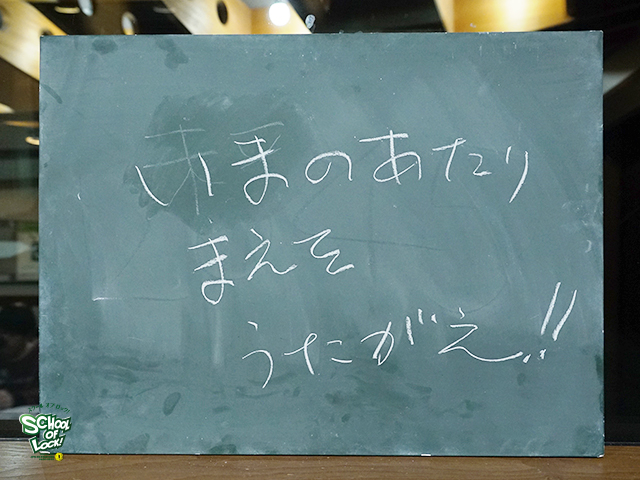 いまのあたり
まえを
うたがえ!!
SCHOOL
OF
LOCK!